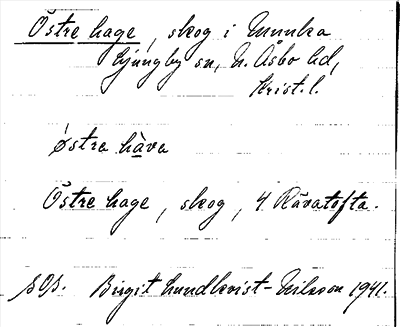 Östre hage, skog i Munka
Ljungby sn, N. Åsbo hd,
Krist. l.
østra hàva
Östre hage, skog, 4 Rävatofta.
s. 0/3. Birgit Lundkvist-Nilsson 1941.